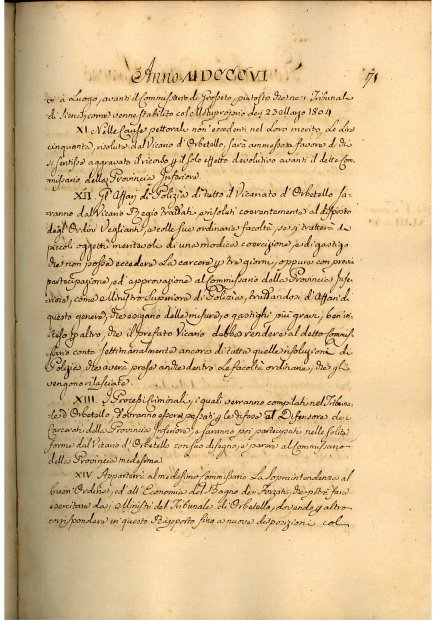 Anno MDCCCVI 71
à Luogo, avanti il Commissario di Grosseto, piutosto che ne' Tribunali
di Siena, come venne stabilito col Motuproprio de' 23 Maggio 1804
XI. Nelle Cause pettorali non eccedenti nel loro merito Le Lire
cinquanta, risolute dal Vicario d'Orbetello, sarà ammesso a favore di chi
si sentisse aggravato il ricorso per il solo effetto devolutivo avanti il detto Com-
missario della Provincia Inferiore.
XII. Gl' Affari di Polizia di tutto il Vicariato d' Orbetello sa-
ranno dal Vicario Regio trattati, e risoluti coerentemente al disposto
degl' Ordini Veglianti, e colle sue ordinarie facoltà, se si tratterà di
piccoli oggetti meritevoli di una modica coercizione, o di gastigo
che non possa eccedere La carcere per tre giorni, oppure con previa
partecipazione, ed approvazione al Commissario della Provincia Infe-
riore, come Ministro Superiore di Polizia, trattandosi d' Affari di
questo genere, che esigano delle misure, o gastighi più gravi, ben in-
teso peraltro che il prefato Vicario debba rendere al detto Commis-
sario conto settimanalmente ancora di tutte quelle risoluzioni di
Polizia, che averà prese anche dentro Le facoltà ordinarie, che gli
vengono rilasciate.
XIII. I Processi Criminali, i quali verranno compilati nel Tribuna-
le d' Orbetello dovranno esser passati per le difese al Difensore de'
Carcerati della Provincia Inferiore, e saranno poi partecipati nelle solite
forme dal Vicario d' Orbetello con suo disegno, e parere al Commissario
della Provincia medesima.
XIV. Apparterrà al medesimo Commissario La Soprintendenza al
buon Ordine, ed all' Economia del Bagno de' Forzati, che potrà fare
esercitare da' Ministri del Tribunale di Orbetello, dovendo peraltro
corrispondere in questo Rapporto fino a nuove disposizioni col